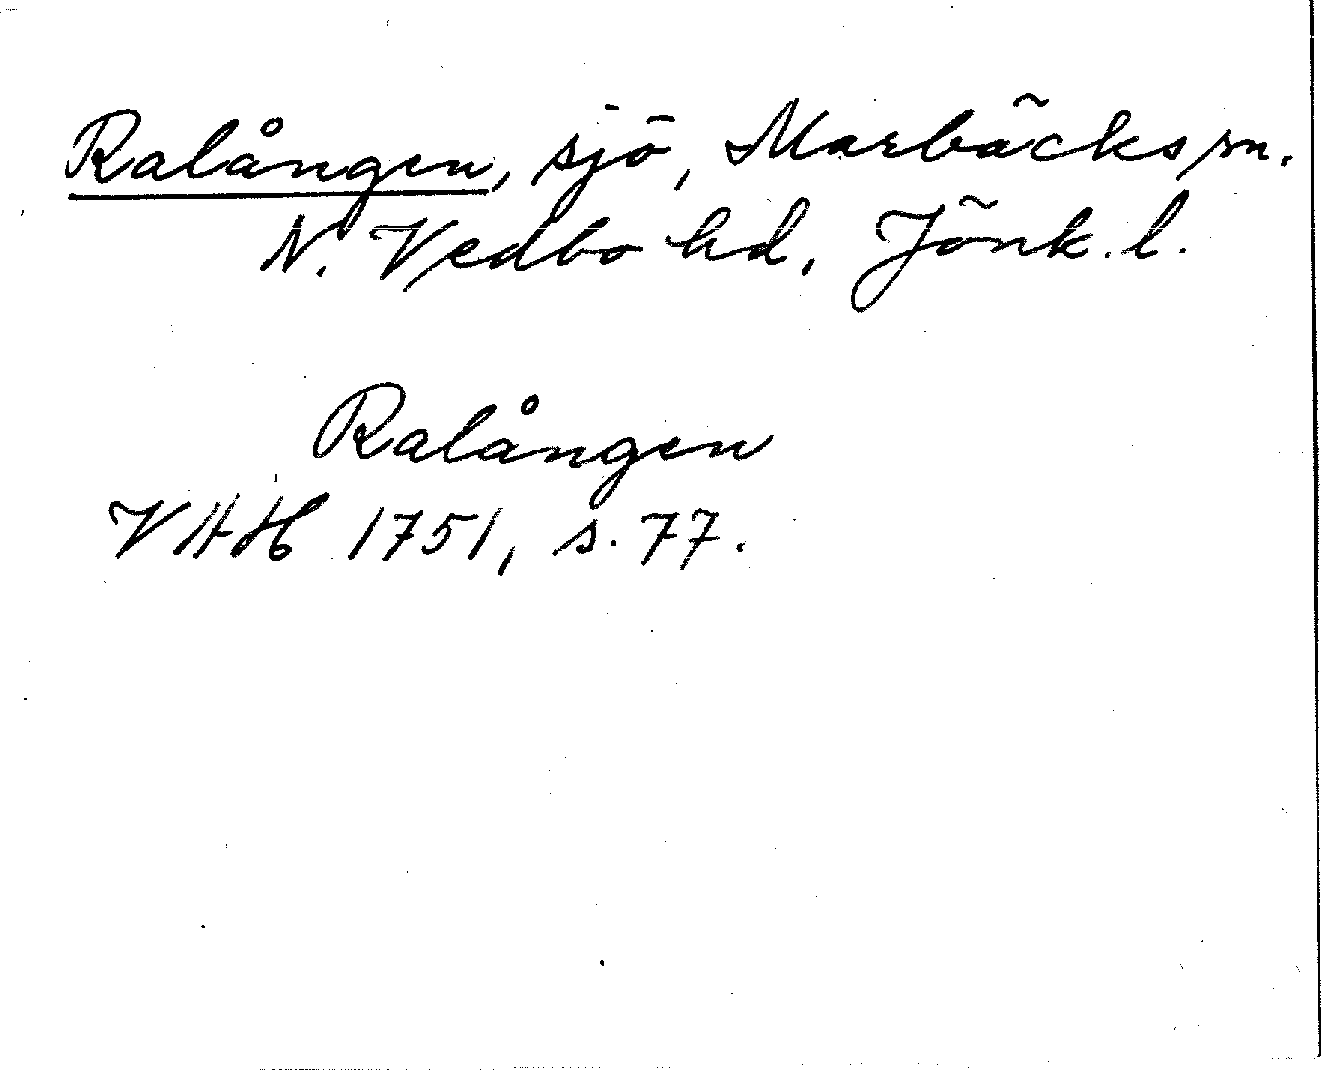 Ralången, sjö, Marbäcks sn.
N. Vedbo hd, Jönk. l.
Ralången
VAH 1751, s. 77.